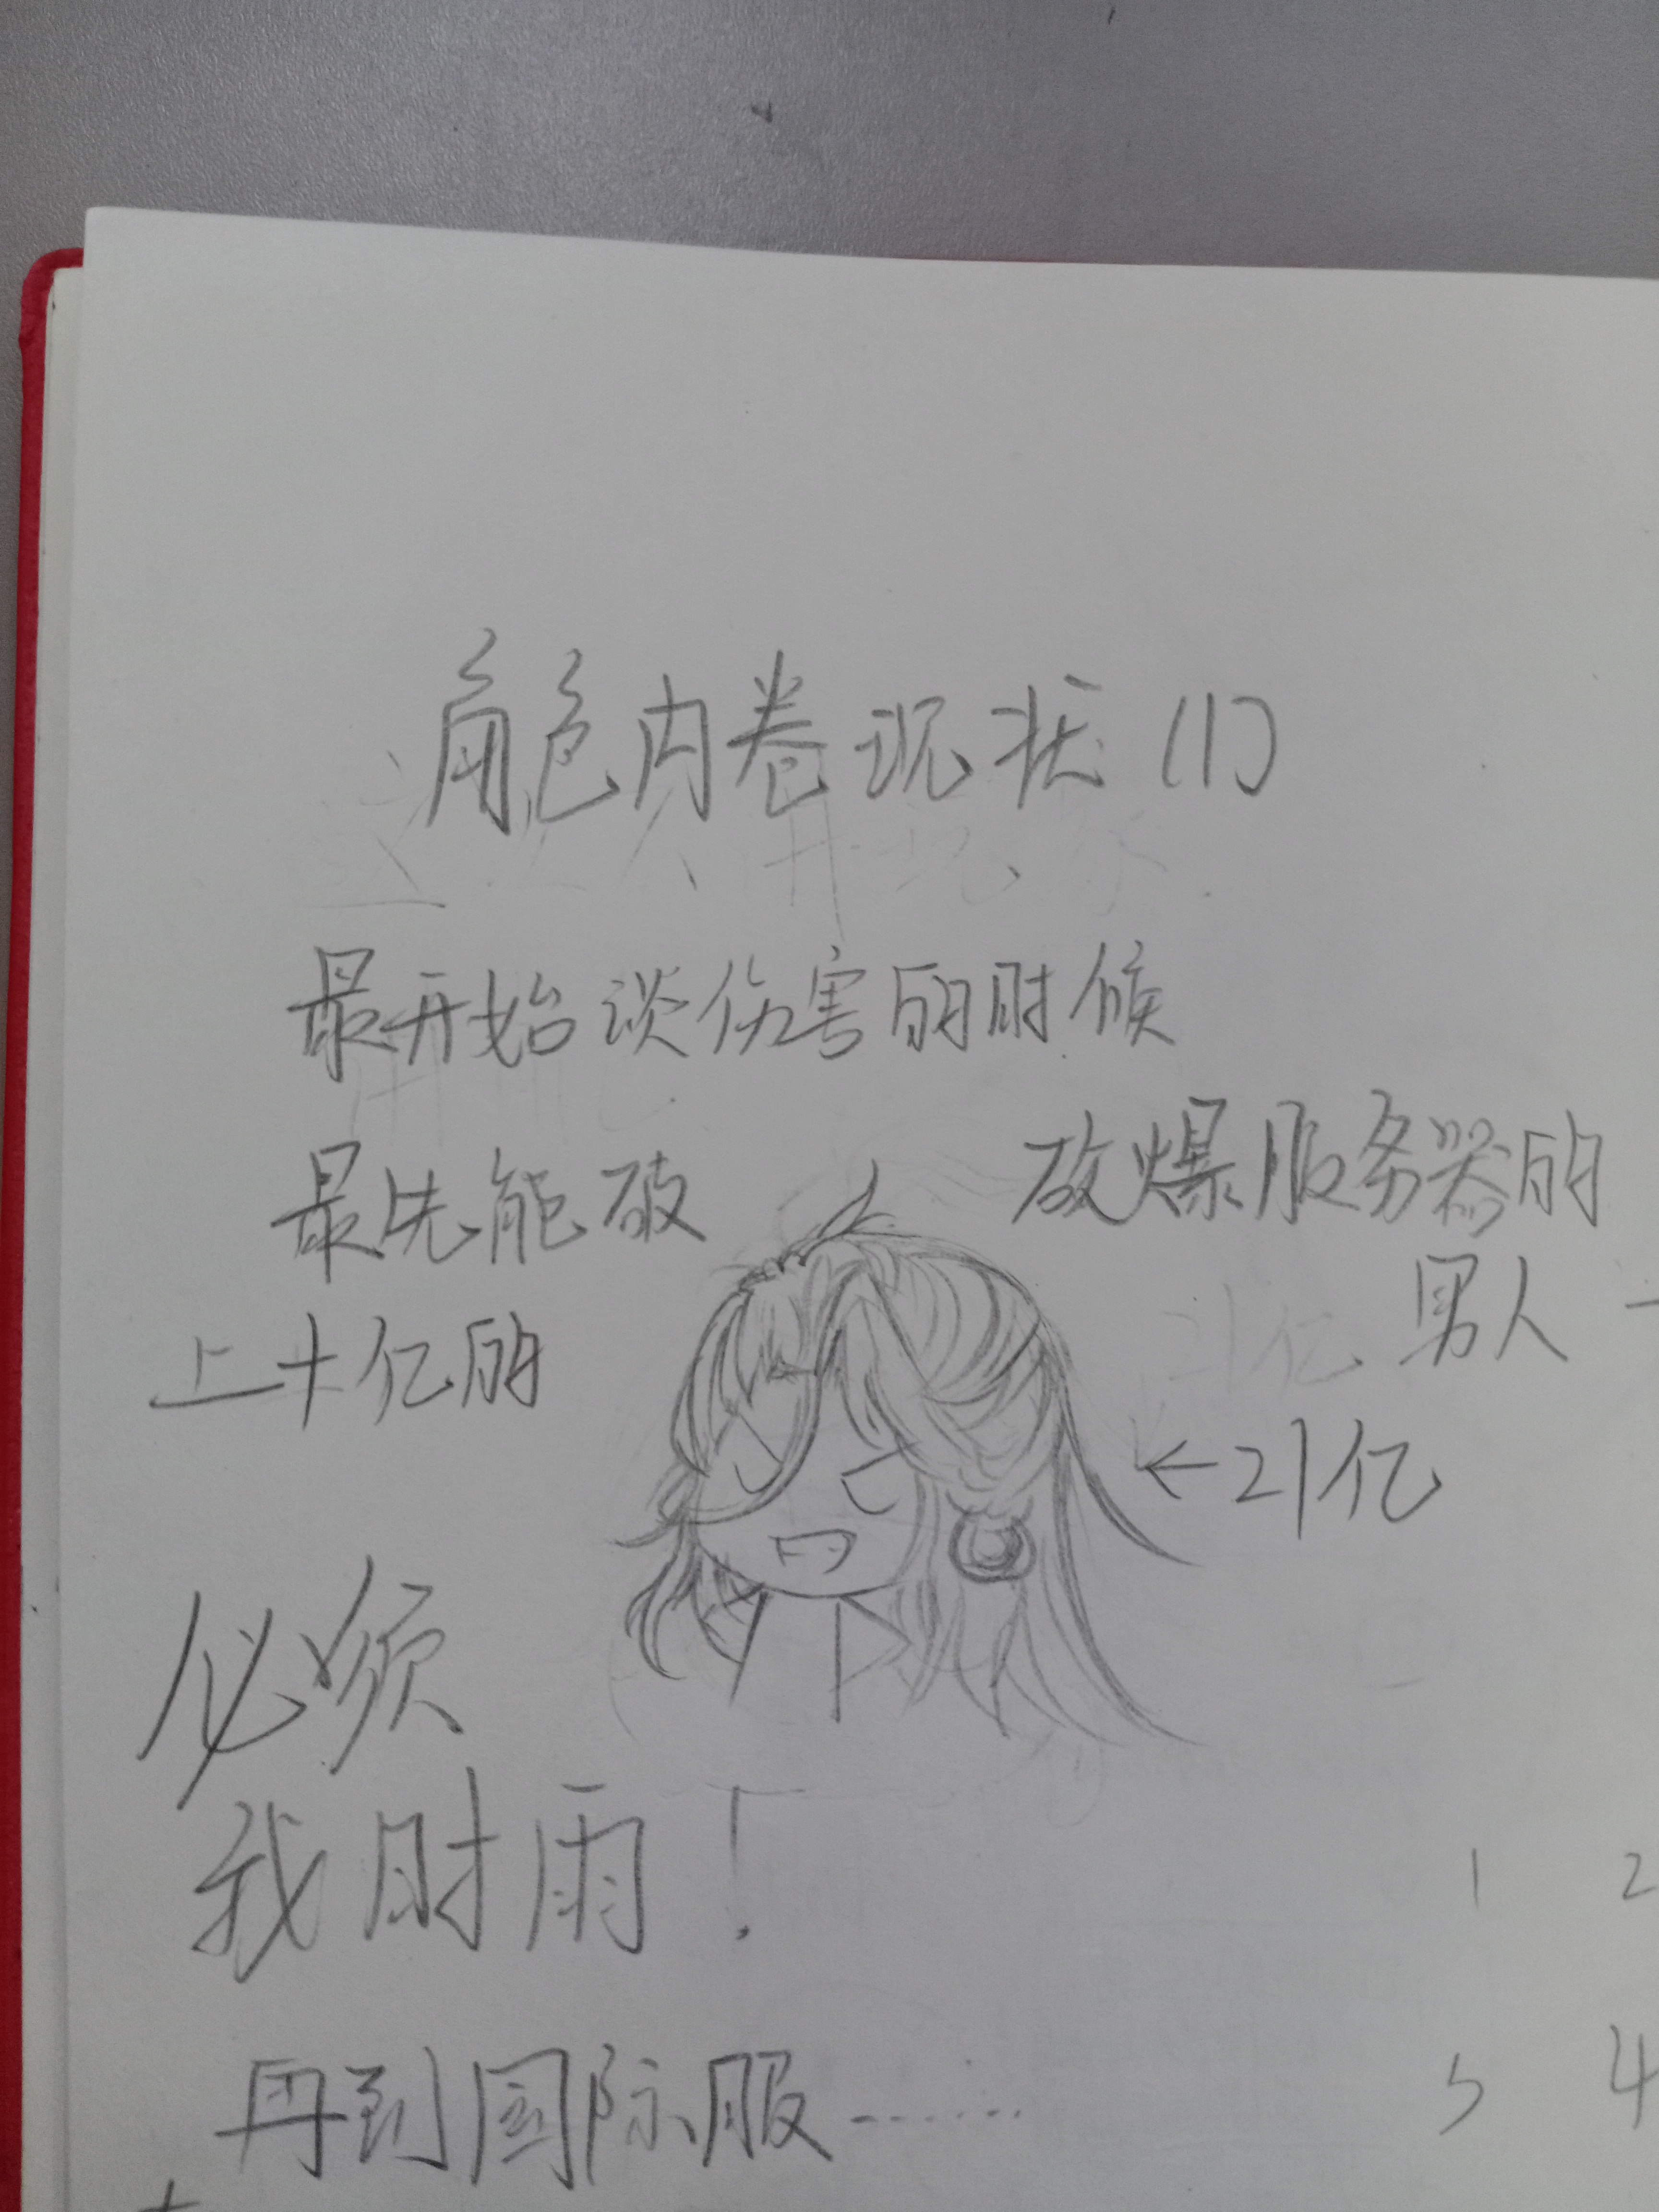 角色内卷现状(1)
最开始谈伤害的时候
最先能破
上十亿的
放爆服务器的
男人
←21亿
必须
我时雨!
1 2
再到国际服……
5 4